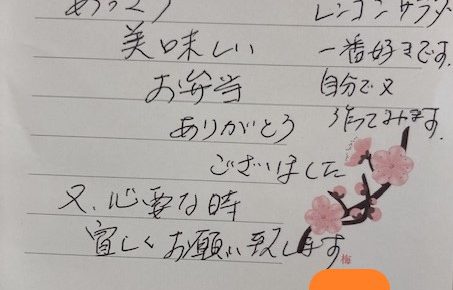 あっさり
美味しい
お弁当
ありがとう
ございました
又、心要な時
宜しくお願い致します
レンコンサラダ
一番好きです.
自分で又
作ってみます.
梅